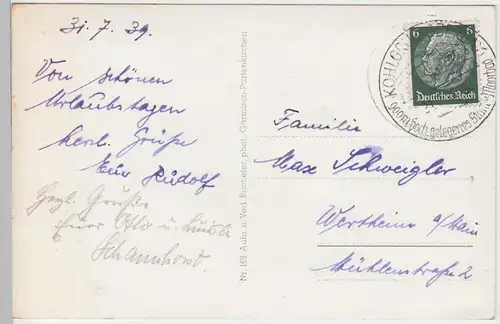 31.7.39.
Von schönen
Urlaubstagen
herzl. Grüße
Euer Rudolf
Herzl. Grüße
Euer Otto u.
Scharnhorst.
Nr. 168 Aufn. u. Verl. phot., Garmisch-Partenkirchen
6 5
Deutsches Reich
KOHLGR
900 m hoch gelegenes
Familie
Max Schweigler
Wertheim a/Main
Mühlenstraße 2